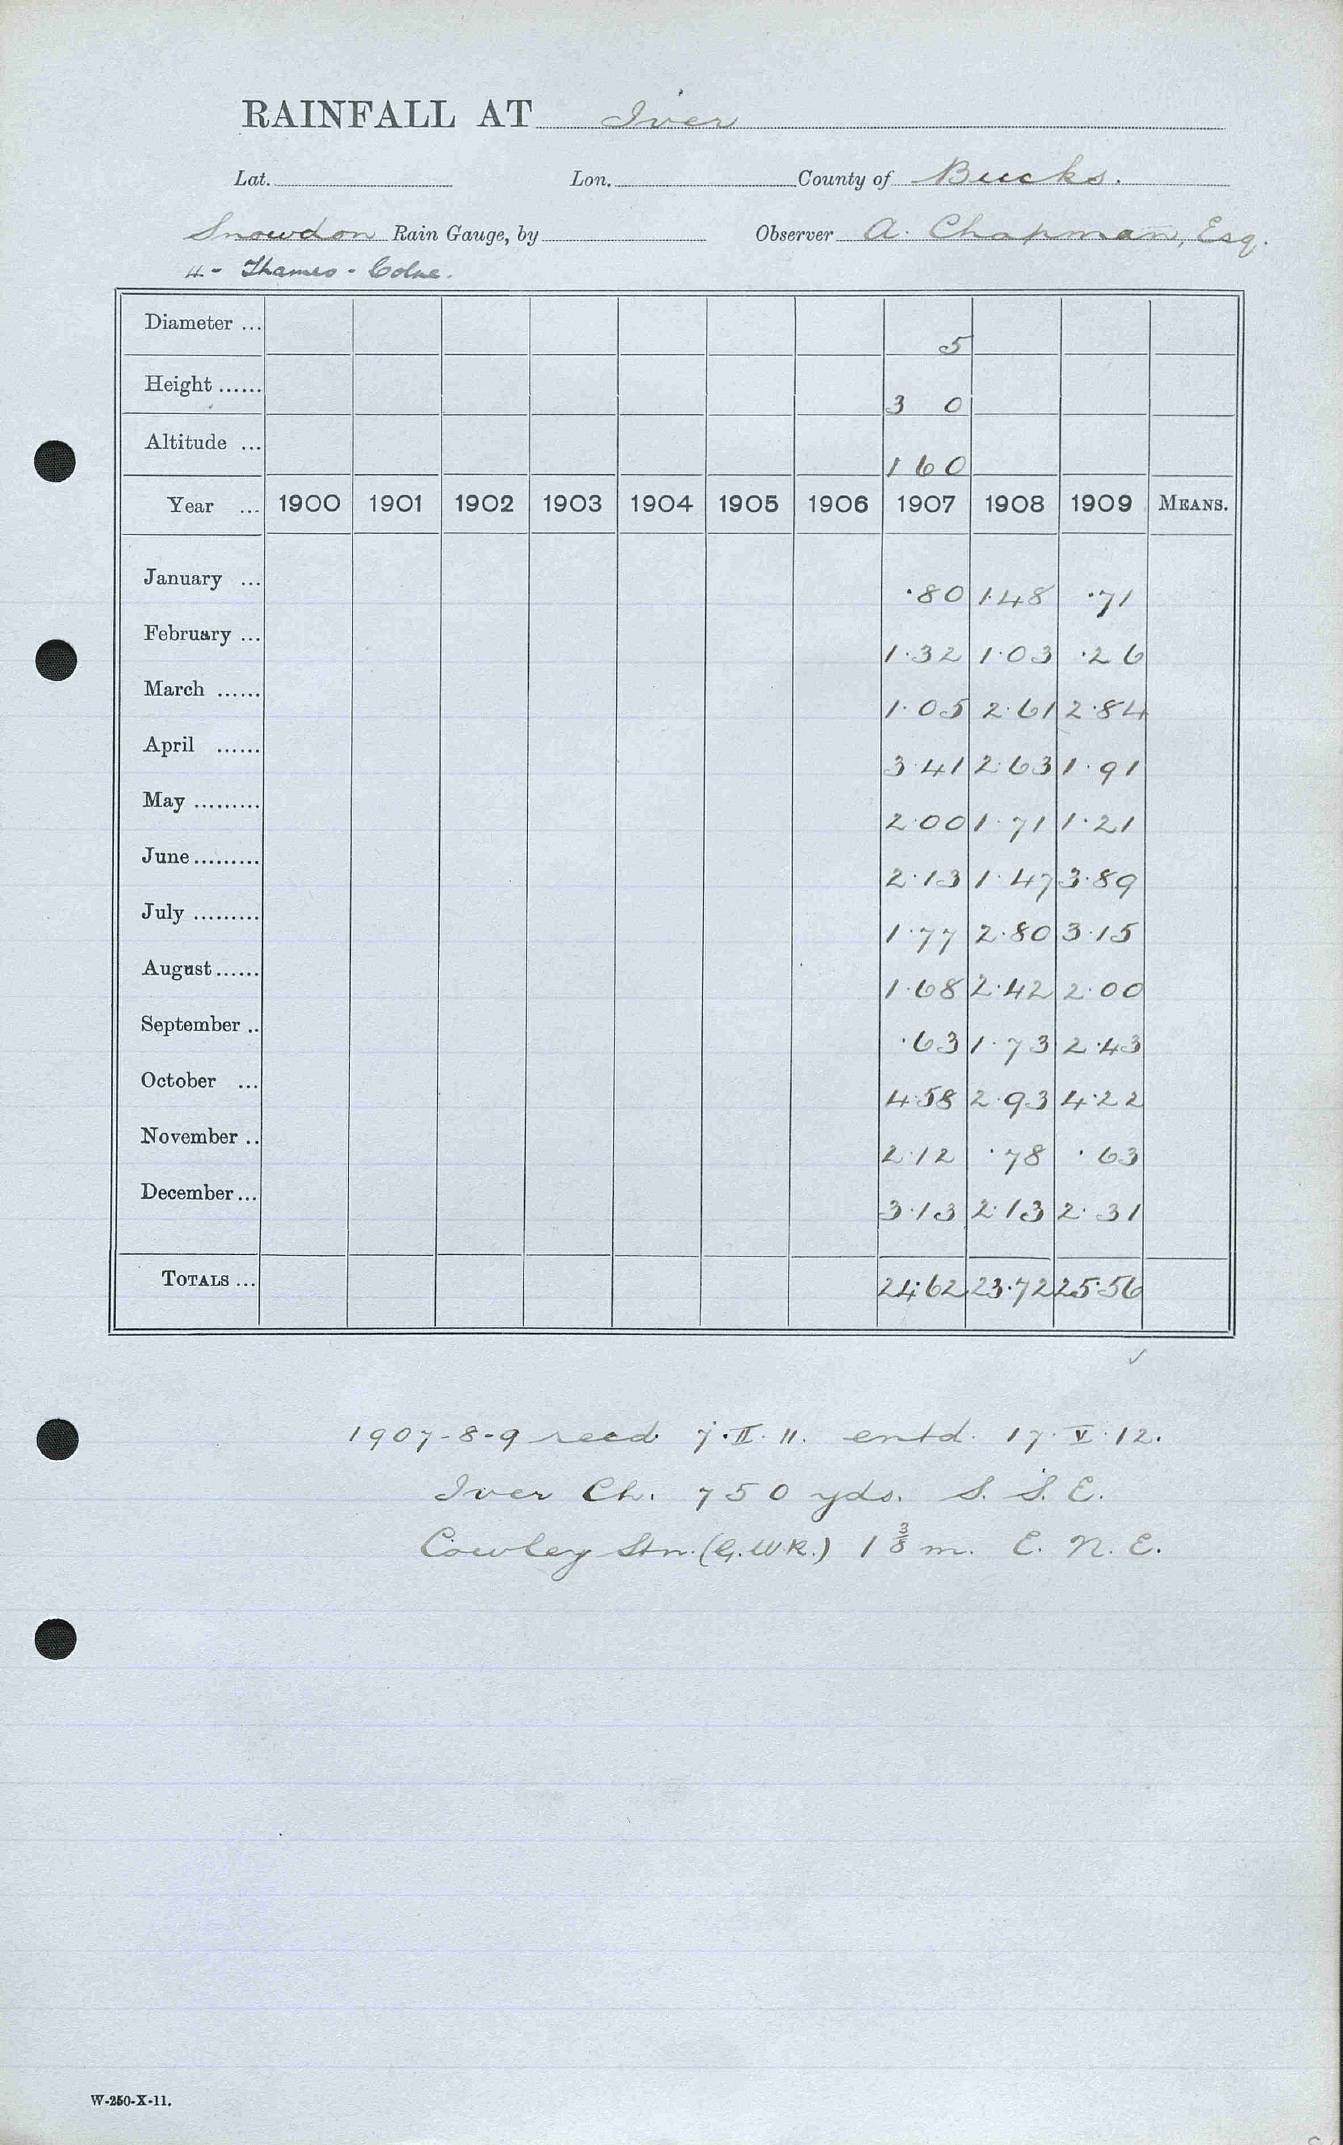 RAINFALL AT Iver
Lat. Lon. County of Bucks.
Snowdon Rain Gauge, by Observer A. Chapman, Esq.
4 - Thames - Colne.
Diameter ... 5
Height ...... 3 0
Altitude ... 160
Year ... 1900 1901 1902 1903 1904 1905 1906 1907 1908 1909 MEANS.
January ... ·80 1·48 ·71
February ... 1·32 1·03 ·26
March ...... 1·05 2·61 2·84
April ...... 3·41 2·63 1·91
May ......... 2·00 1·71 1·21
June ......... 2·13 1·47 3·89
July ......... 1·77 2·80 3·15
August ...... 1·68 2·42 2·00
September .. ·63 1·73 2·43
October ... 4·58 2·93 4·22
November .. 2·12 ·78 ·63
December ... 3·13 2·13 2·31
TOTALS ... 24·62 23·72 25·56
1907-8-9 recd. 7·II·11. entd. 17·V·12.
Iver Ch. 750 yds. S. S. E.
Cowley Stn. (G.W.R.) 1 3/8 m. E. N. E.
W-250-X-11.